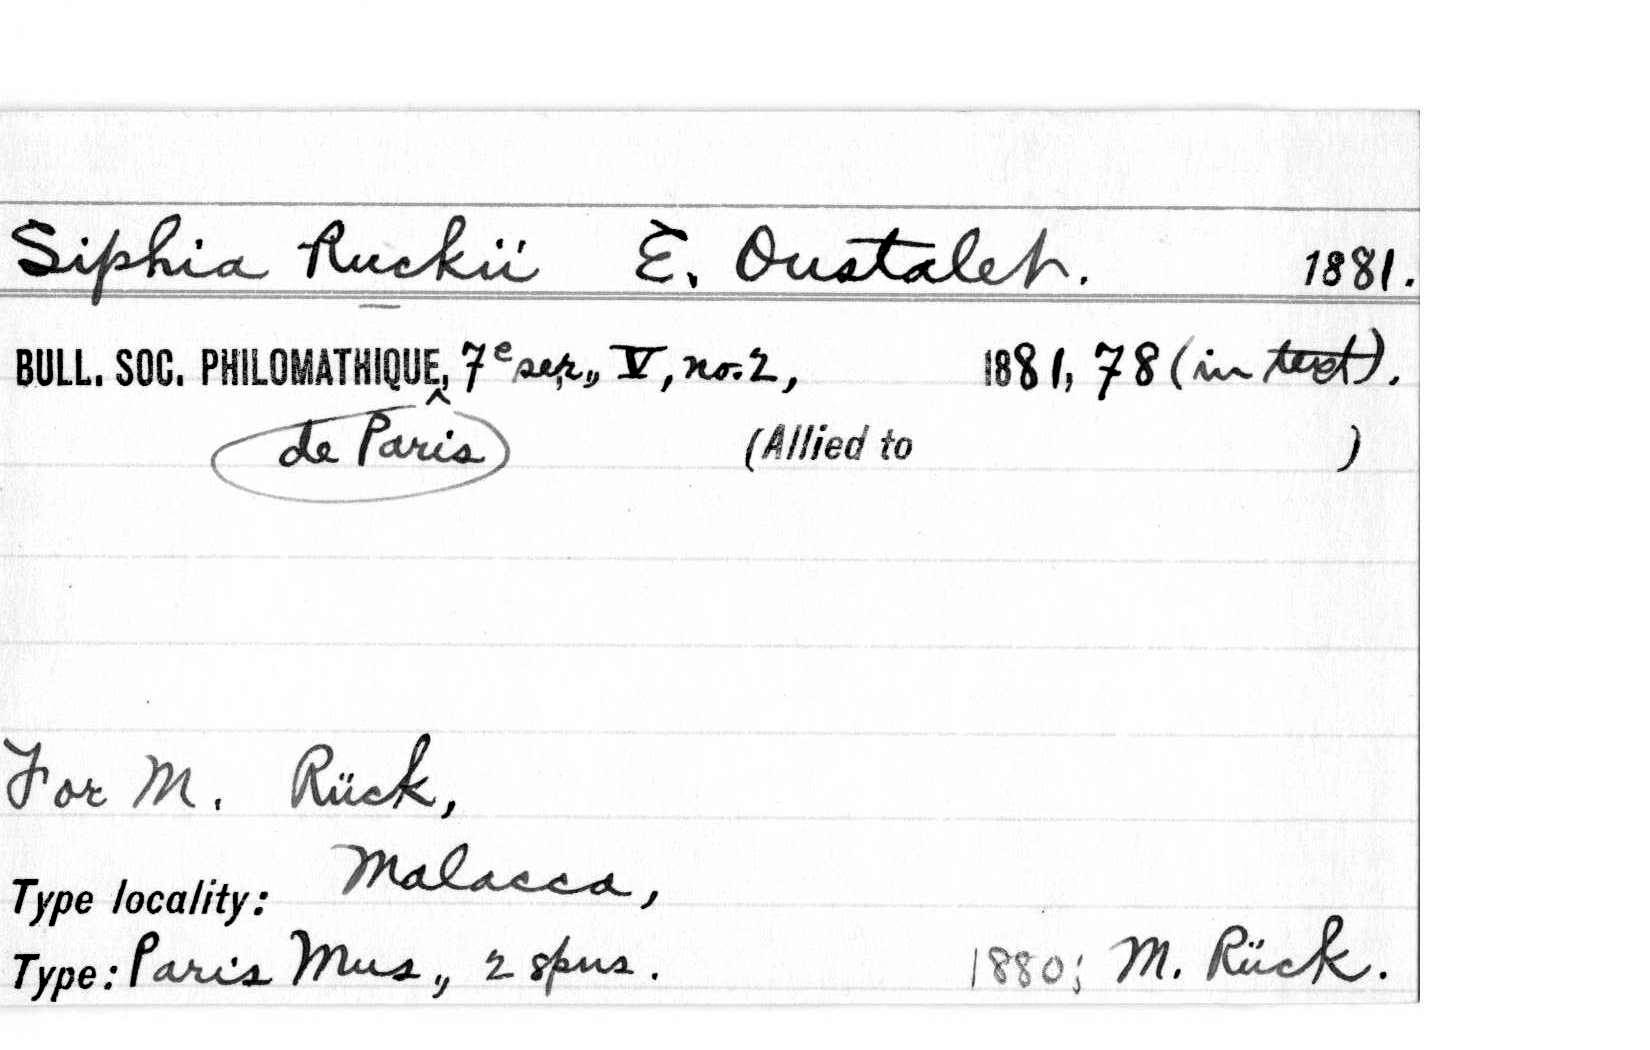 Siphia Ruckii E. Oustalet. 1881.
BULL. SOC. PHILOMATHIQUE, 7e ser., V, no. 2, 1881, 78 (in text).
^
de Paris (Allied to )
For M. Rück,
Malacca,
Type locality:
Type: Paris Mus., 2 spns. 1880; M. Rück.